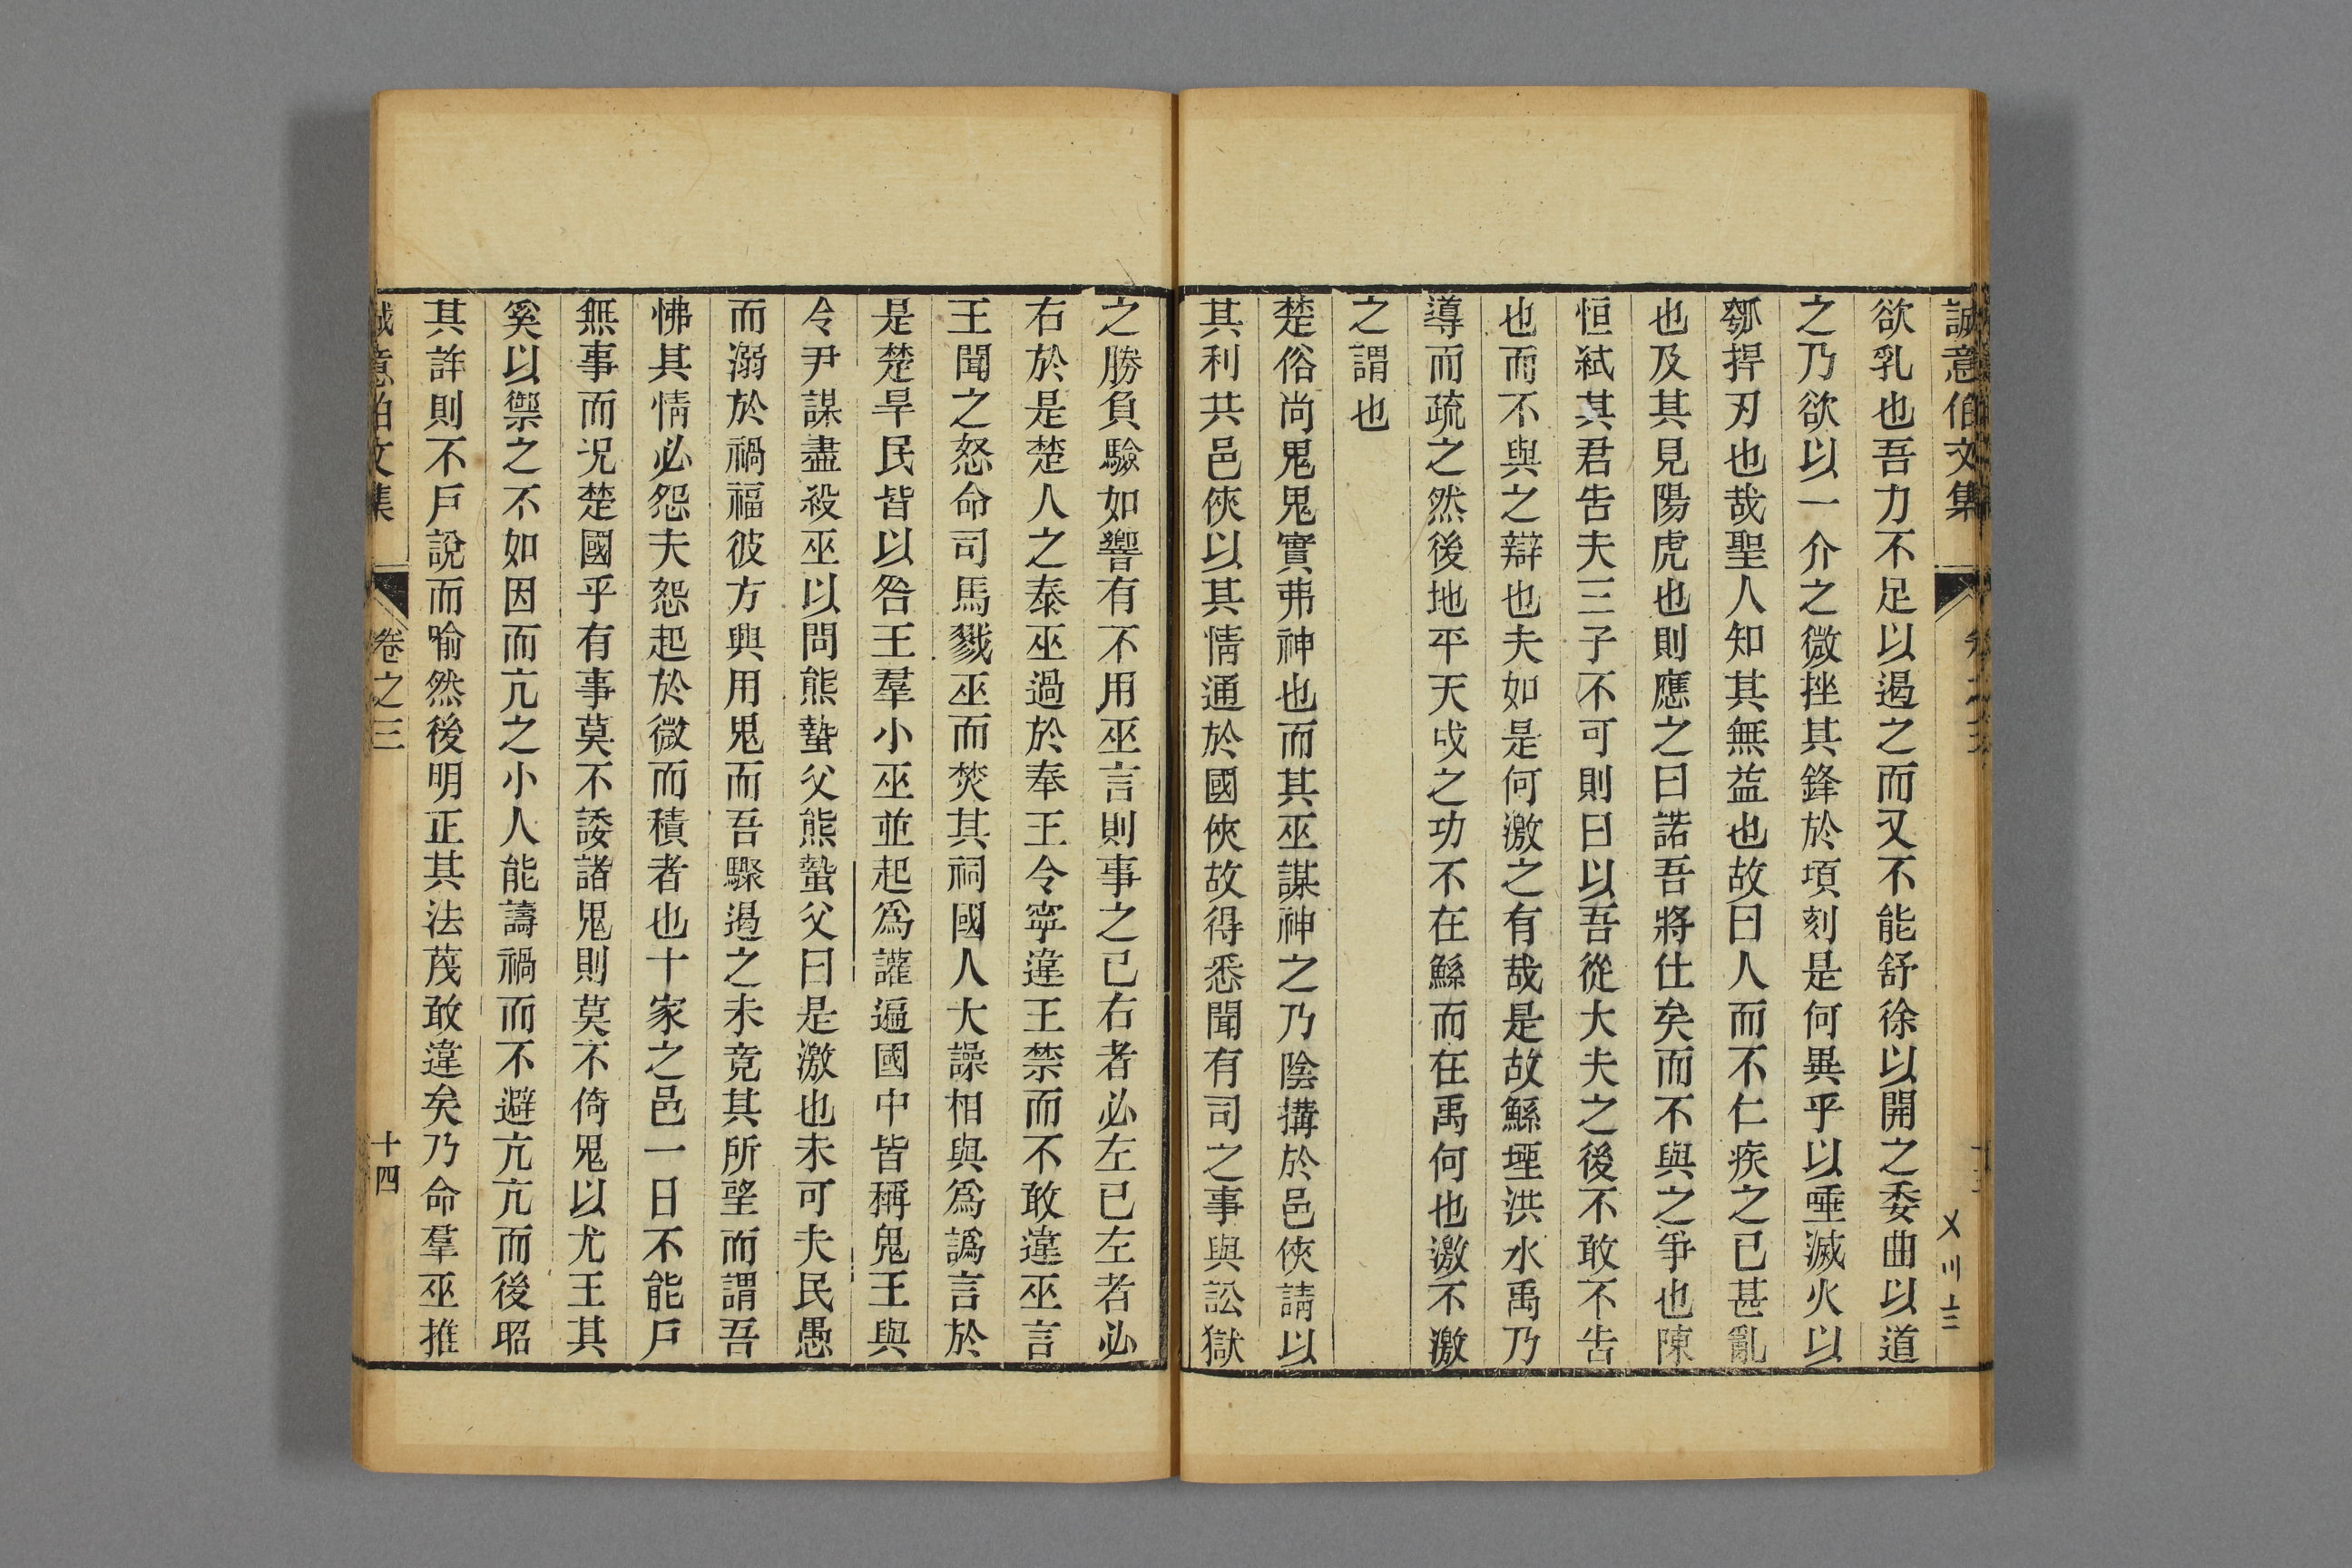 誠意伯文集
欲乳也吾力不足以遏之而又不能舒徐以開之委曲以道
之乃欲以一介之微挫其鋒於項刻是何異乎以唾滅火以
瓠捍刃也哉聖人知其無益也故曰人而不仁疾之已甚亂
也及其見陽虎也則應之曰諾吾將仕矣而不與之爭也陳
恒弑其君告夫三子不可則曰以吾從大夫之後不敢不告
也而不與之辯也夫如是何激之有哉是故鯀堙洪水禹乃
導而疏之然後地平天成之功不在鯀而在禹何也激不激
之謂也
楚俗尚鬼鬼實弗神也而其巫謀神之乃陰搆於邑俠請以
其利共邑俠以其情通於國俠故得悉聞有司之事與訟獄
之勝負驗如響有不用巫言則事之已右者必左已左者必
右於是楚人之泰巫過於奉王令寧違王禁而不敢違巫言
王聞之怒命司馬戮巫而焚其祠國人大譟相與爲譌言於
是楚旱民皆以咎王羣小巫並起爲讙遍國中皆稱鬼王與
令尹謀盡殺巫以問熊蟄父熊蟄父曰是激也未可夫民愚
而溺於禍福彼方興用鬼而吾驟遏之未竟其所望而謂吾
怫其情必怨夫怨起於微而積者也十家之邑一日不能戸
無事而况楚國乎有事莫不諉諸鬼則莫不倚鬼以尤王其
奚以禦之不如因而亢之小人能譸禍而不避亢亢而後昭
其詐則不戸說而喻然後明正其法茂敢違矣乃命羣巫推
誠意伯文集
卷之三
十四